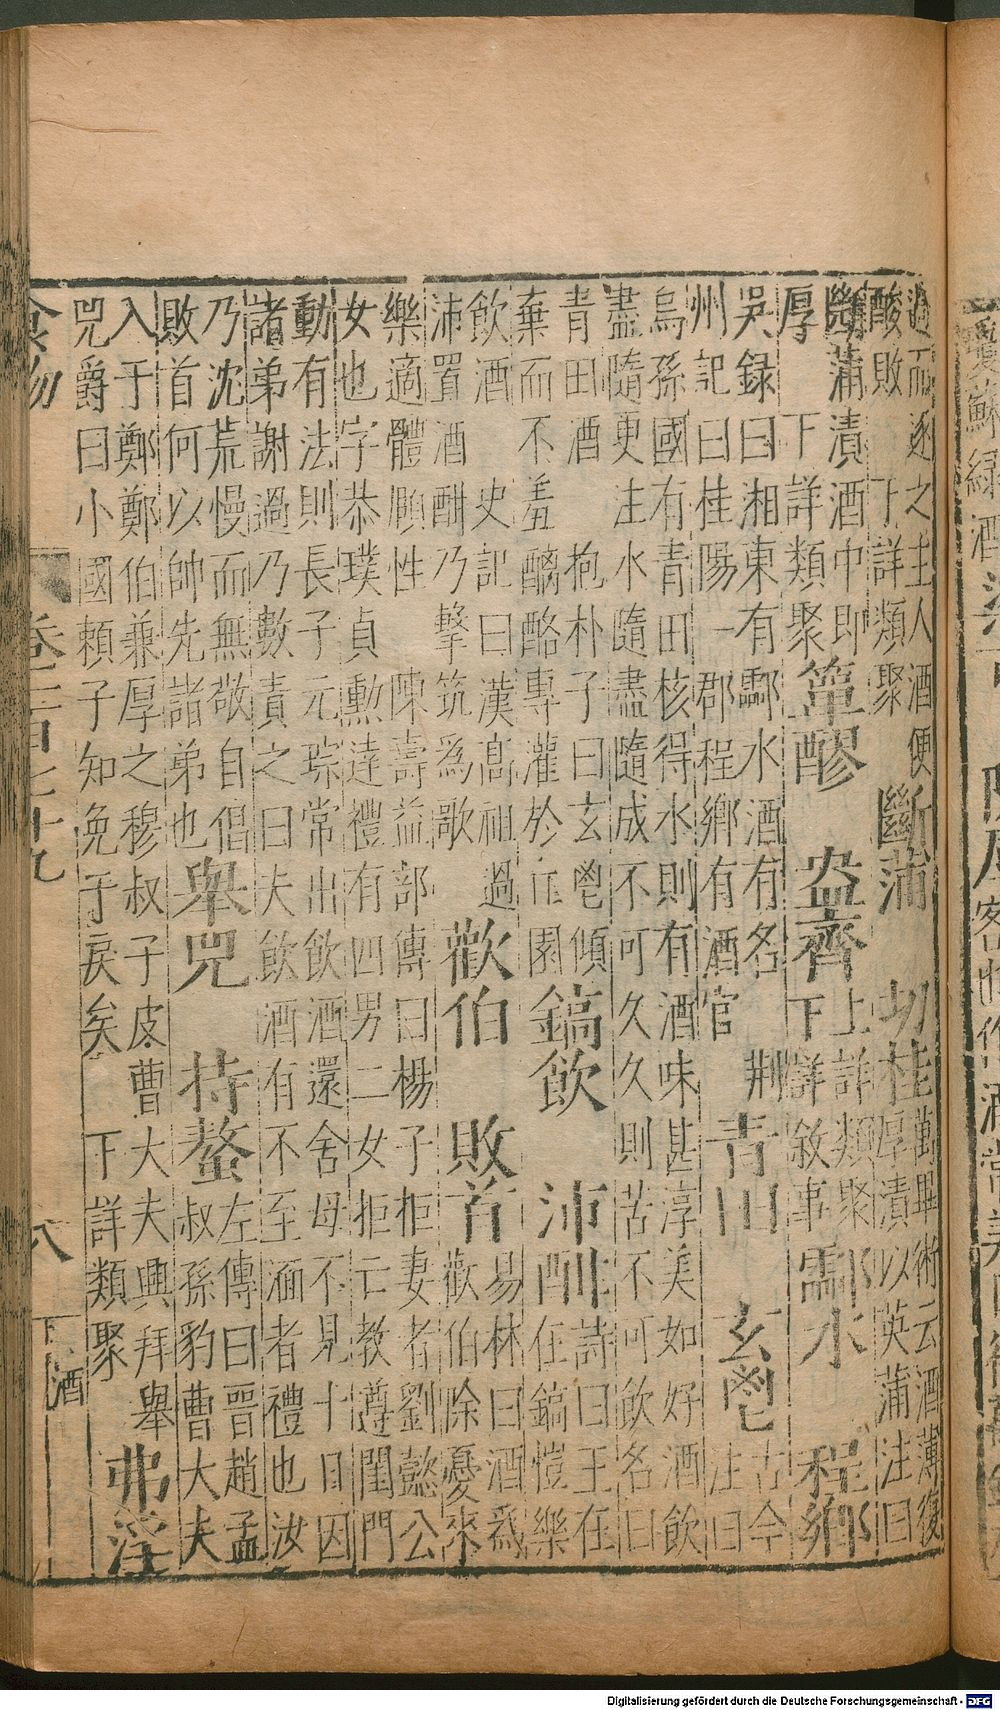 過而逐之主人酒便
酸敗 下詳類聚
斷蒲 切桂
萬畢術云酒薄復
厚漬以英蒲注曰
斷蒲漬酒中即
厚 下詳類聚
簞醪 盎齊
上詳類聚
下詳敘事
酃水 程鄉
吳録曰湘東有酃水酒有名 荆
州記曰桂陽一郡程鄉有酒官
青田 玄鬯
古今
注曰
烏孫國有青田核得水則有酒味甚淳美如好酒飲
盡隨更注水隨盡隨成不可久久則苦不可飲名曰
青田酒 抱朴子曰玄鬯傾
棄而不羞醨酪專灌於丘園
鎬飲 沛酣
詩曰王在
在鎬愷樂
飲酒 史記曰漢高祖過
沛置酒酣乃擊筑爲歌
歡伯 敗首
易林曰酒爲
歡伯除憂來
樂適體頤性 陳壽益部傳曰楊子拒妻者劉懿公
女也字恭璞貞勲達禮有四男二女拒亡教遵閨門
動有法則長子元琮常出飲酒還舍母不見十日因
諸弟謝過乃數責之曰夫飲酒有不至湎者禮也汝
乃沈荒慢而無敬自倡
敗首何以帥先諸弟也
舉兕 持螯
左傳曰晉趙孟
叔孫豹曹大夫
入于鄭鄭伯兼厚之穆叔子皮曹大夫興拜舉
兕爵曰小國賴子知免于戾矣 下詳類聚
弗淫
食物
八
酒
Digitalisierung gefördert durch die Deutsche Forschungsgemeinschaft - DFG